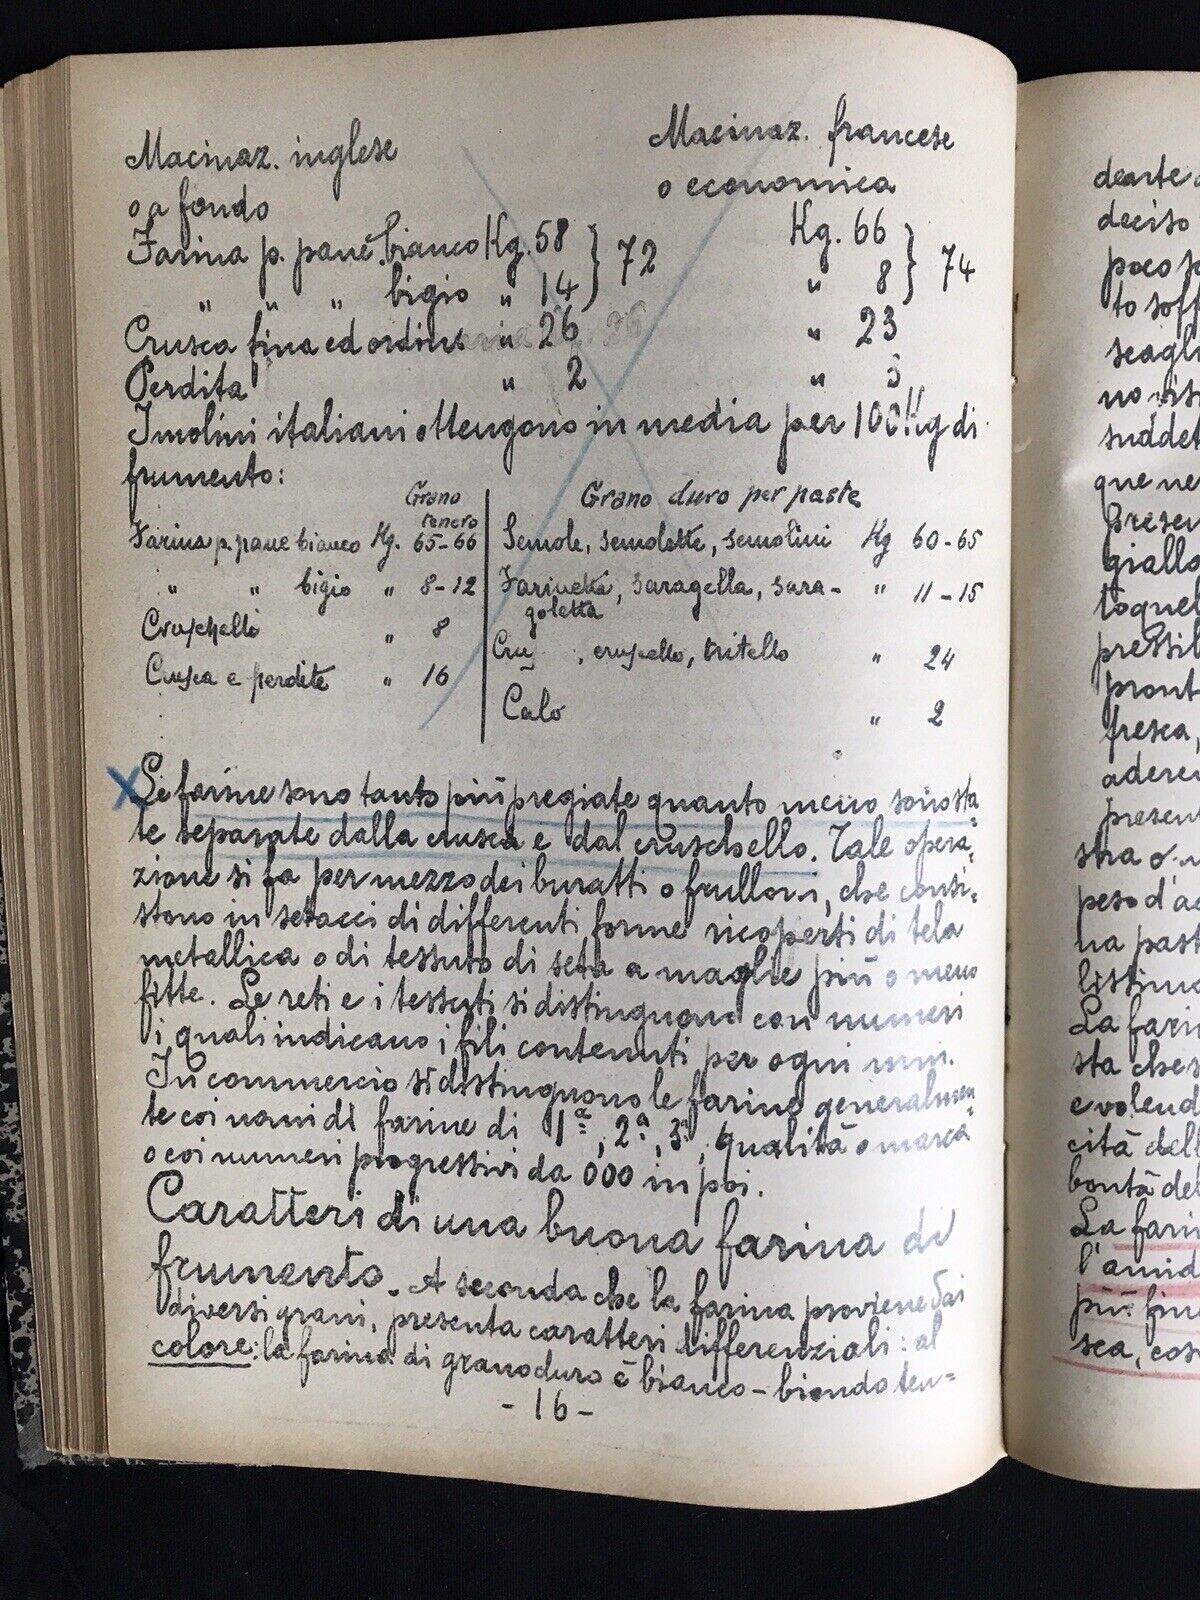 Macinaz. inglese
o a fondo
Macinaz. francese
o economica
Farina p. pane bianco Kg. 58 } 72 Kg. 66 } 74
" " " bigio " 14 " 8
Crusca fina ed ordin. " 26 " 23
Perdita " 2 " 3
I molini italiani ottengono in media per 100 Kg di
frumento:
Grano
tenero
Farina p. pane bianco Kg. 65-66
" " bigio " 8-12
Cruschello " 8
Crusca e perdite " 16
Grano duro per paste
Semole, semolette, semolini Kg 60-65
Farinetta, saragella, sara- " 11-15
goletta
Cru , cruscello, tritello " 24
Calo " 2
Le farine sono tanto più pregiate quanto meno sono sta=
te separate dalla crusca e dal cruschello. Tale opera=
zione si fa per mezzo dei buratti o frulloni, che consi=
stono in setacci di differenti forme ricoperti di tela
metallica o di tessuto di seta a maglie più o meno
fitte. Le reti e i tessuti si distinguono con numeri
i quali indicano i fili contenuti per ogni mm.
In commercio si distinguono le farine generalmen=
te coi nomi di farine di 1ª, 2ª, 3ª, qualità o marca
o coi numeri progressivi da 000 in poi.
Caratteri di una buona farina di
frumento. A seconda che la farina proviene dai
diversi grani, presenta caratteri differenziali: al
colore: la farina di grano duro è bianco-biondo ten=
-16-
deciso
poco
to soff
seagl
suddet
que ne
presen
giallo
toque
pressi
pront
fresca,
adere
present
stra o
peso d'a
na past
listino
La fari
sta che
e volend
cità dell
bontà de
La fari
l'amid
più fin
sca, cos